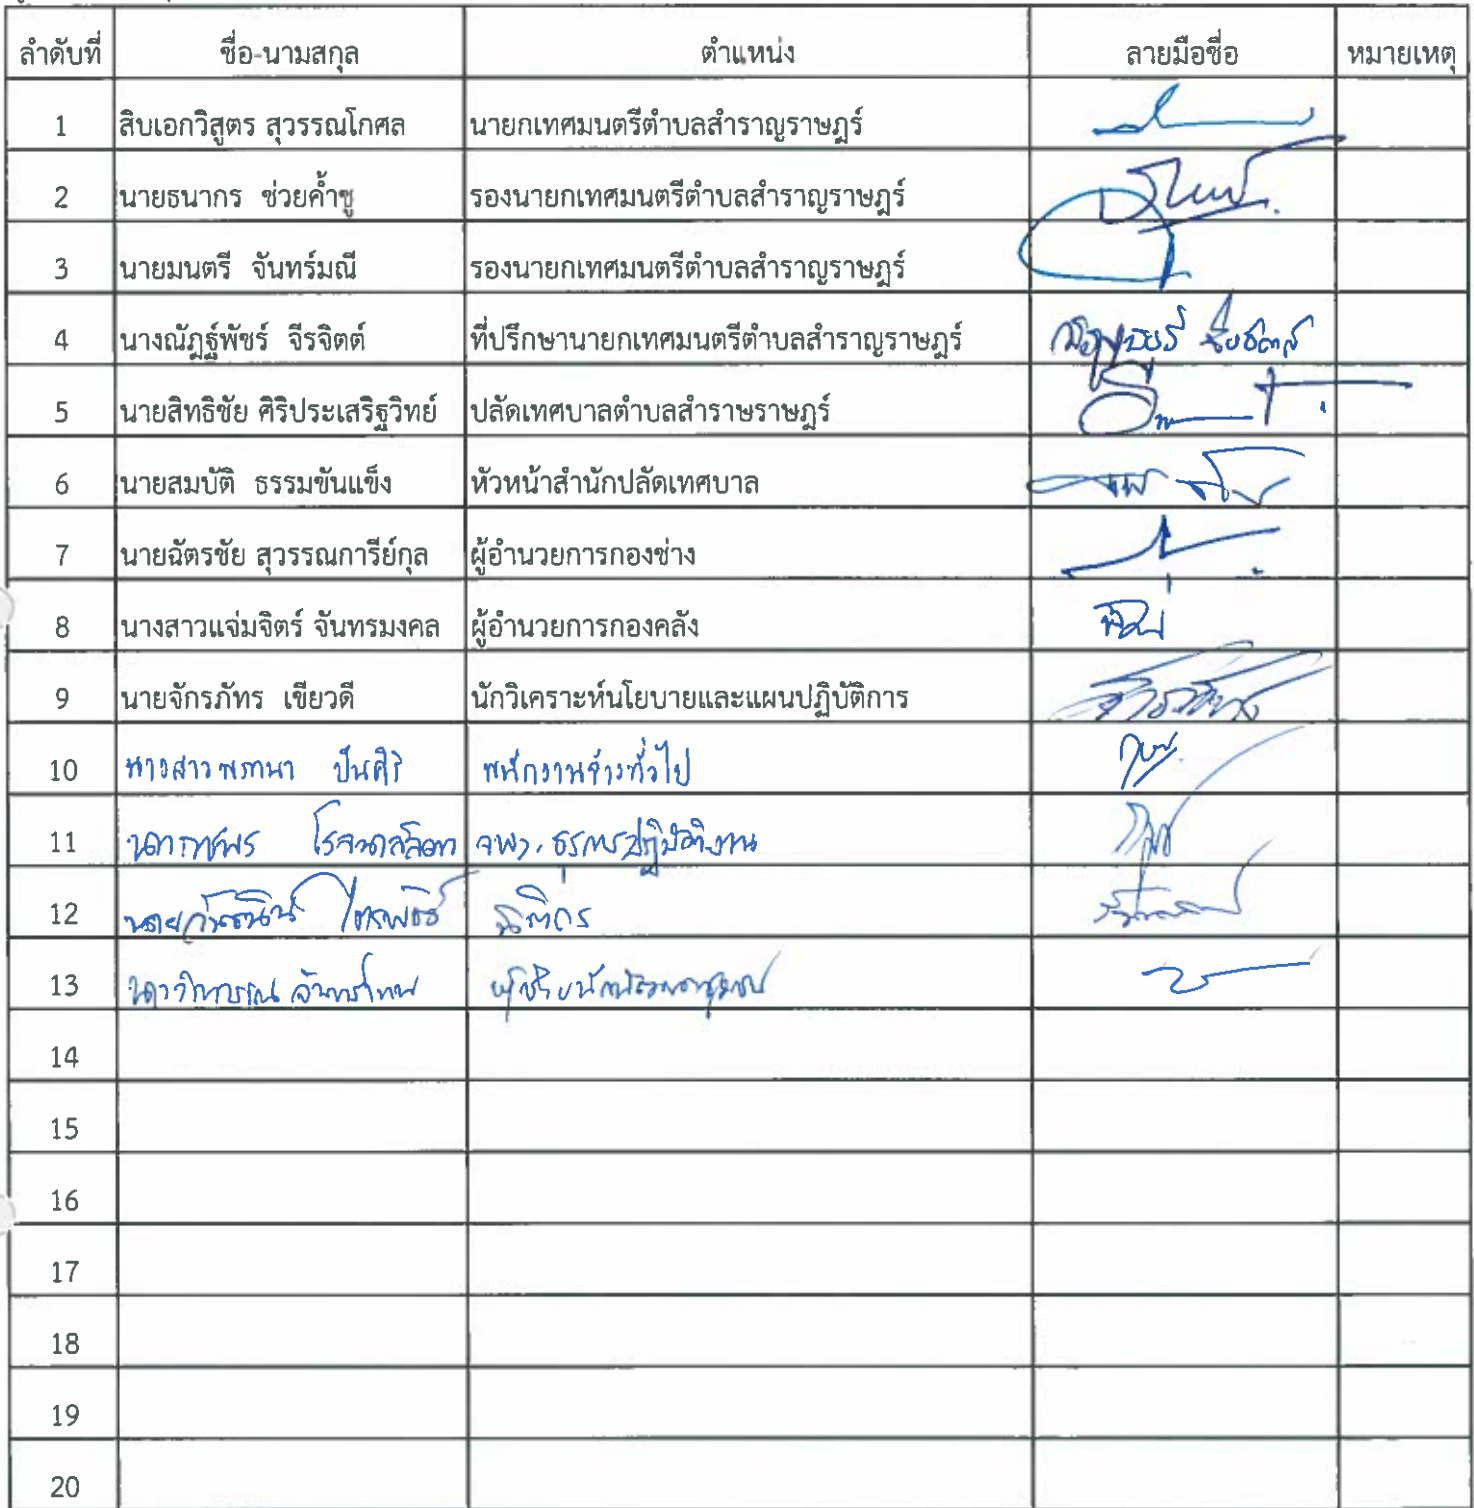 ลำดับที่ ชื่อ-นามสกุล ตำแหน่ง ลายมือชื่อ หมายเหตุ
1 สิบเอกวิสูตร สุวรรณโกศล นายกเทศมนตรีตำบลสำราญราษฎร์
2 นายธนากร ช่วยค้ำชู รองนายกเทศมนตรีตำบลสำราญราษฎร์
3 นายมนตรี จันทร์มณี รองนายกเทศมนตรีตำบลสำราญราษฎร์
4 นางณัฎฐ์พัชร์ จีรจิตต์ ที่ปรึกษานายกเทศมนตรีตำบลสำราญราษฎร์
5 นายสิทธิชัย ศิริประเสริฐวิทย์ ปลัดเทศบาลตำบลสำราษราษฎร์
6 นายสมบัติ ธรรมขันแข็ง หัวหน้าสำนักปลัดเทศบาล
7 นายฉัตรชัย สุวรรณการีย์กุล ผู้อำนวยการกองช่าง
8 นางสาวแจ่มจิตร์ จันทรมงคล ผู้อำนวยการกองคลัง
9 นายจักรภัทร เขียวดี นักวิเคราะห์นโยบายและแผนปฏิบัติการ
10 นางสาว ปันศิริ พนักงานจ้างทั่วไป
11 จพง.ธุรการปฏิบัติงาน
12 นิติกร
13
14
15
16
17
18
19
20